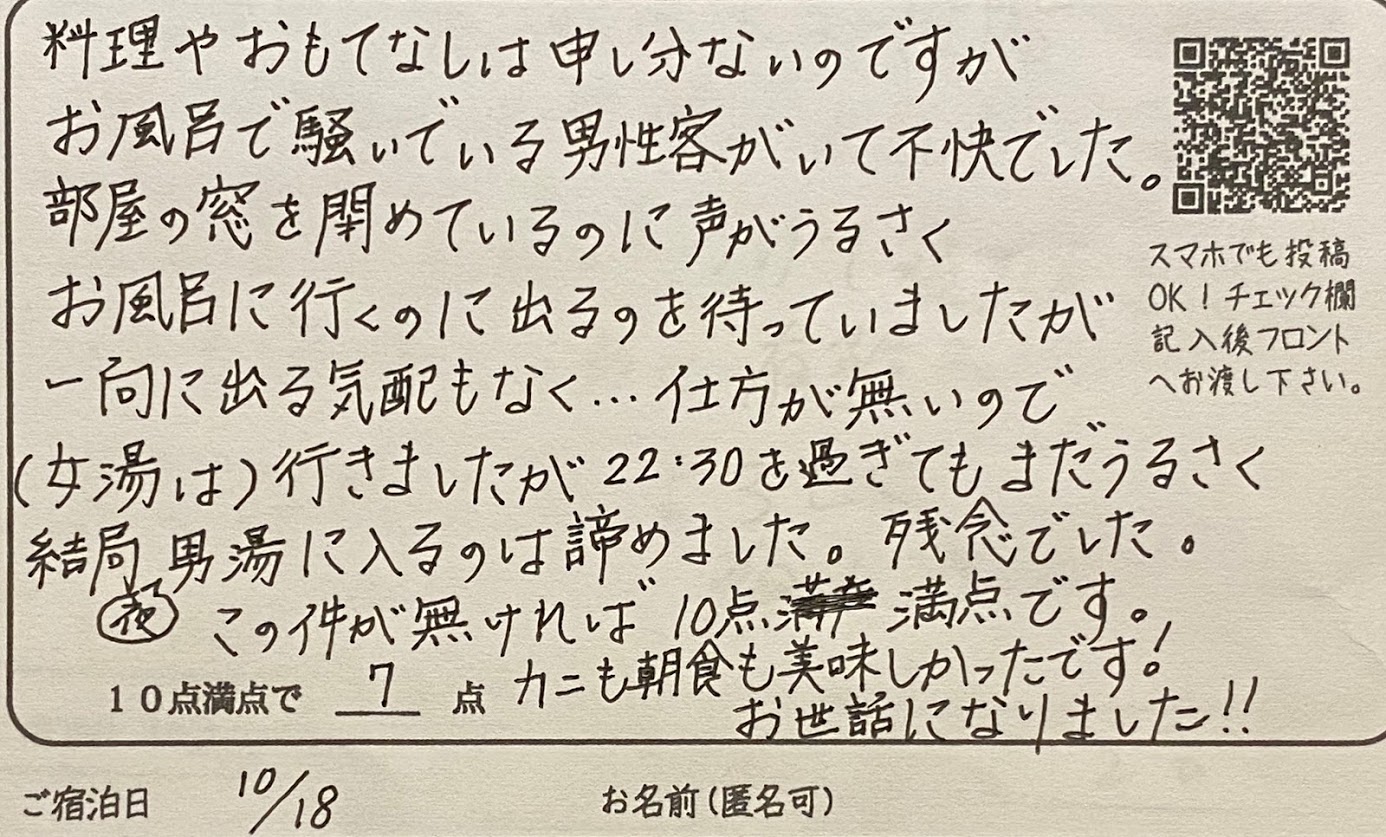 料理やおもてなしは申し分ないのですが
お風呂で騒いでいる男性客がいて不快でした。
部屋の窓を閉めているのに声がうるさく
お風呂に行くのに出るのを待っていましたが
一向に出る気配もなく…仕方が無いので
(女湯は)行きましたが22:30を過ぎてもまだうるさく
結局男湯に入るのは諦めました。残念でした。
夜
この件が無ければ10点 満点です。
カニも朝食も美味しかったです!
お世話になりました!!
10点満点で 7 点
スマホでも投稿
OK!チェック欄
記入後フロント
へお渡し下さい。
ご宿泊日 10/18 お名前(匿名可)